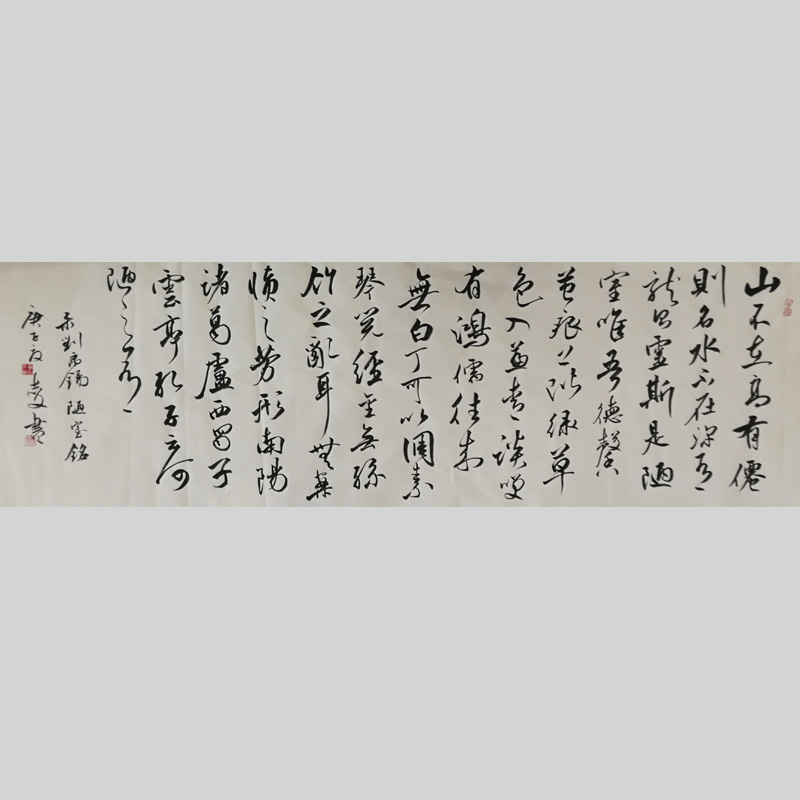 山不在高有僊
則名水不在深有
龍則靈斯是陋
室唯吾德馨
苔痕上階綠草
色入簾青談笑
有鴻儒往來
無白丁可以調素
琴閱經金無絲
竹之亂耳無案
牘之勞形南陽
諸葛廬西蜀子
雲亭孔子云何
陋之有
录劉禹錫陋室銘
庚子夏
書